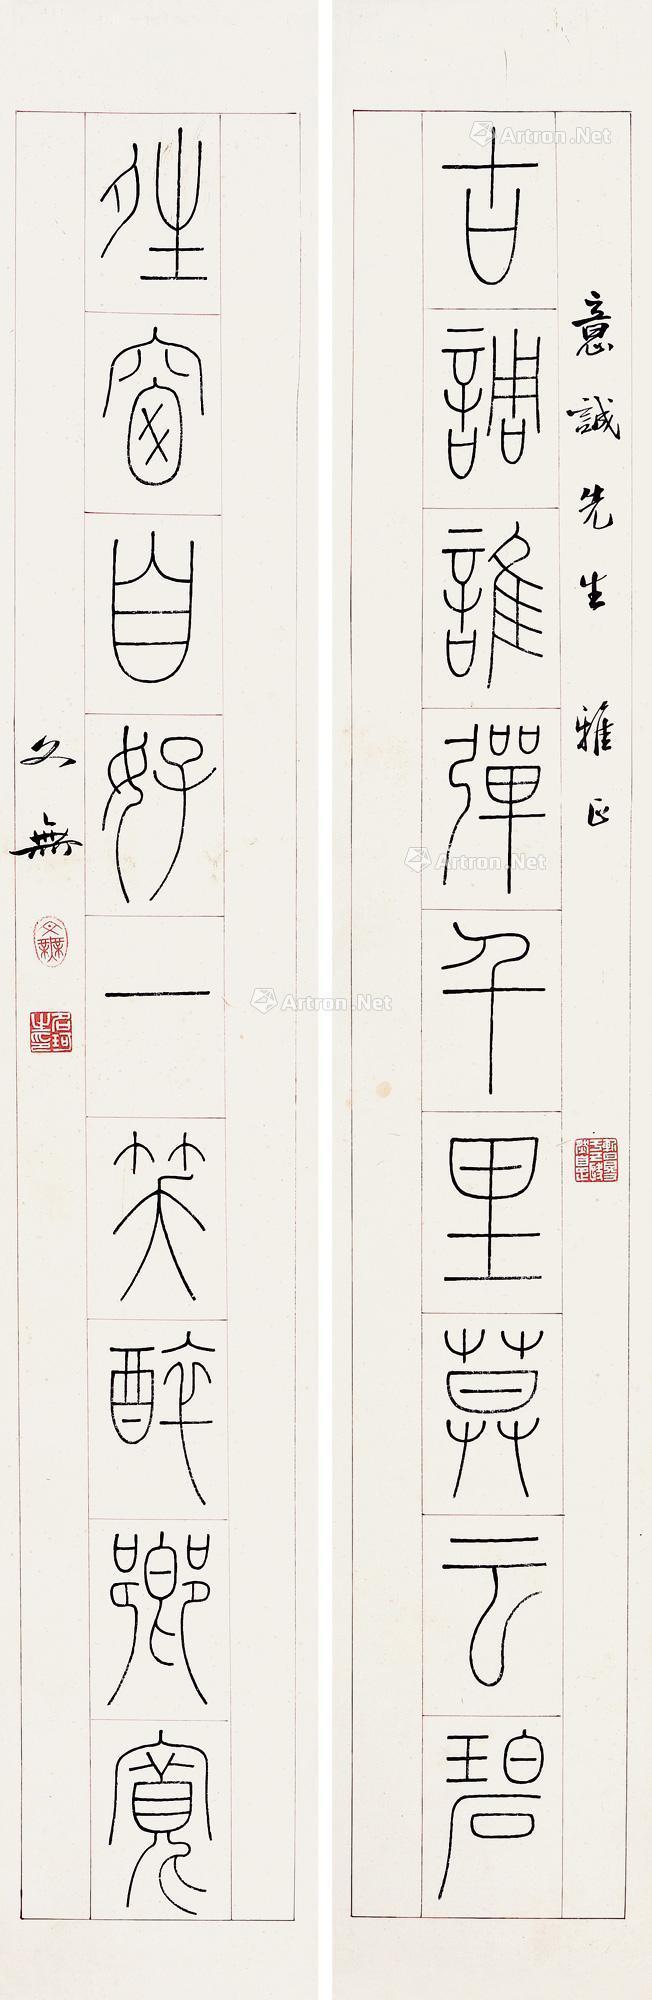 意誠先生 雅正
古調誰彈千里莫云碧
夝窗自好一笑醉鄉寬
文無
文無
名珂之印
Artron.Net
Artron.Net
Artron.Net